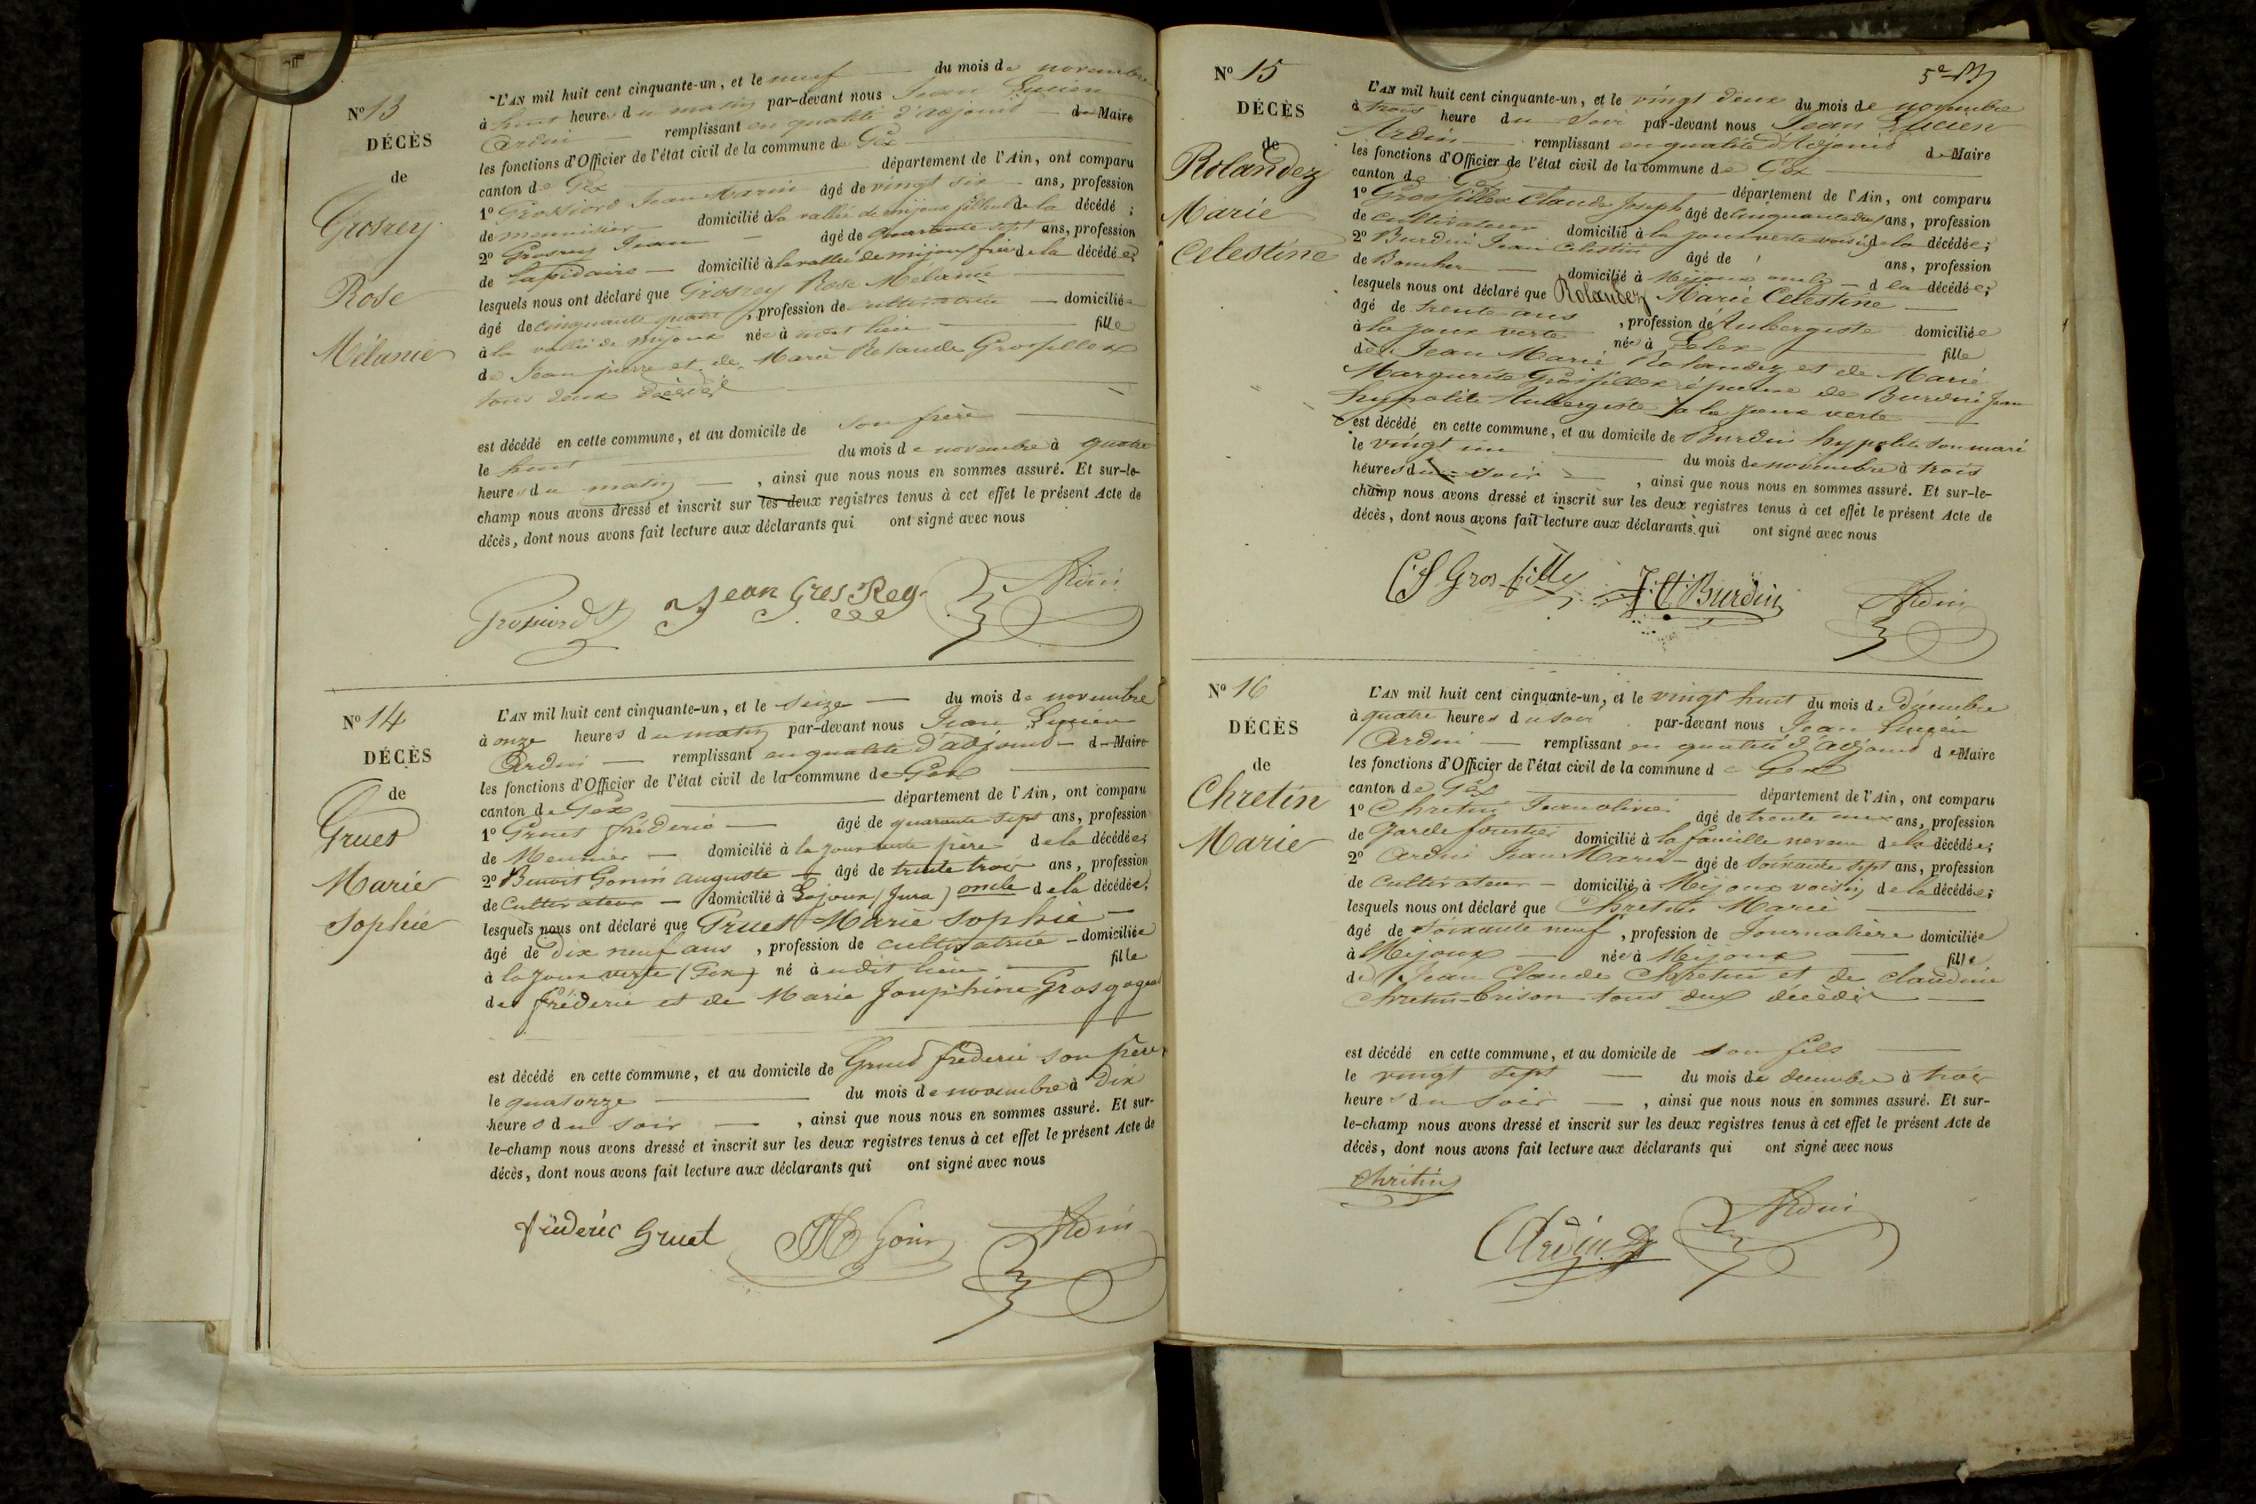 N° 13
DÉCÈS
de
Grosrey
Rose
Mélanie
L'AN mil huit cent cinquante-un, et le neuf du mois de novembre
à huit heures du matin par-devant nous Jean Lucien
Ardin remplissant en qualité d'adjoint de Maire
les fonctions d'Officier de l'état civil de la commune de Gex
canton de Gex département de l'Ain, ont comparu
1° Grossiord Jean Marie âgé de vingt six ans, profession
de menuisier domicilié à la vallée de mijoux filleul de la décédé ;
2° Grosrey Jean âgé de quarante sept ans, profession
de lapidaire domicilié à la vallée de mijoux frère de la décédée;
lesquels nous ont déclaré que Grosrey Rose Mélanie
âgé de cinquante quatre, profession de cultivatrice domiciliée
à la vallée de mijoux née à audit lieu fille
de Jean pierre et de Marie Rolande Grosfillex
tous deux décédés
est décédé en cette commune, et au domicile de son frère
le huit du mois de novembre à quatre
heures du matin, ainsi que nous nous en sommes assuré. Et sur-le-
champ nous avons dressé et inscrit sur les deux registres tenus à cet effet le présent Acte de
décès, dont nous avons fait lecture aux déclarants qui ont signé avec nous
Grossiord Jean Gros Rey Ardin
N° 14
DÉCÈS
de
Gruet
Marie
Sophie
L'AN mil huit cent cinquante-un, et le seize du mois de novembre
à onze heures du matin par-devant nous Jean Lucien
Ardin remplissant en qualité d'adjoint de Maire
les fonctions d'Officier de l'état civil de la commune de Gex
canton de Gex département de l'Ain, ont comparu
1° Gruet fréderic âgé de quarante sept ans, profession
de Meunier domicilié à la joux verte père de la décédée;
2° Benoit Gonin auguste âgé de trente trois ans, profession
de Cultivateur domicilié à Lajoux (Jura) oncle de la décédée;
lesquels nous ont déclaré que Gruet Marie Sophie
âgé de Dix neuf ans, profession de cultivatrice domiciliée
à la joux verte (Gex) né à audit lieu fille
de fréderic et de Marie Josephine Grosgogeat
est décédé en cette commune, et au domicile de Gruet fréderic son père
le quatorze du mois de novembre à Dix
heures du soir, ainsi que nous nous en sommes assuré. Et sur-
le-champ nous avons dressé et inscrit sur les deux registres tenus à cet effet le présent Acte de
décès, dont nous avons fait lecture aux déclarants qui ont signé avec nous
fréderic Gruet Gonin Ardin
N° 15
DÉCÈS
de
Rolandez
Marie
Celestine
L'AN mil huit cent cinquante-un, et le vingt deux du mois de novembre
à trois heure du Soir par-devant nous Jean Lucien
Ardin remplissant en qualité d'Adjoint de Maire
les fonctions d'Officier de l'état civil de la commune de Gex
canton de Gex département de l'Ain, ont comparu
1° Grosfillex Claude Joseph âgé de cinquante ans, profession
de cultivateur domicilié à la joux verte voisin de la décédée;
2° Burdin Jean Celestin âgé de ans, profession
de Boucher domicilié à Mijoux oncle de la décédée;
lesquels nous ont déclaré que Rolandez Marie Celestine
âgé de trente ans, profession d'Aubergiste domiciliée
à la joux verte née à Lelex fille
de Jean Marie Rolandez et de Marie
Marguerite Grosfillex épouse de Burdin Jean
hypolite Aubergiste à la joux verte
est décédé en cette commune, et au domicile de Burdin hypolite son mari
le vingt un du mois de novembre à trois
heures du soir, ainsi que nous nous en sommes assuré. Et sur-le-
champ nous avons dressé et inscrit sur les deux registres tenus à cet effet le présent Acte de
décès, dont nous avons fait lecture aux déclarants qui ont signé avec nous
C J Gros-filley J. C. Burdin Ardin
N° 16
DÉCÈS
de
Chretin
Marie
L'AN mil huit cent cinquante-un, et le vingt huit du mois de Décembre
à quatre heures du soir par-devant nous Jean Lucien
Ardin remplissant en qualité d'adjoint de Maire
les fonctions d'Officier de l'état civil de la commune de Gex
canton de Gex département de l'Ain, ont comparu
1° Chretin Jean olivier âgé de trente ans, profession
de garde forestier domicilié à la faucille neveu de la décédée;
2° Ardin Jean Marie âgé de soixante sept ans, profession
de Cultivateur domicilié à Mijoux voisin de la décédée;
lesquels nous ont déclaré que Chretin Marie
âgé de soixante neuf, profession de Journalière domiciliée
à Mijoux née à Mijoux fille
de Jean Claude Chretin et de claudine
Chretin-Brison tous deux décédés
est décédé en cette commune, et au domicile de son fils
le vingt sept du mois de decembre à trois
heures du soir, ainsi que nous nous en sommes assuré. Et sur-
le-champ nous avons dressé et inscrit sur les deux registres tenus à cet effet le présent Acte de
décès, dont nous avons fait lecture aux déclarants qui ont signé avec nous
Chrétin
Ardin Ardin